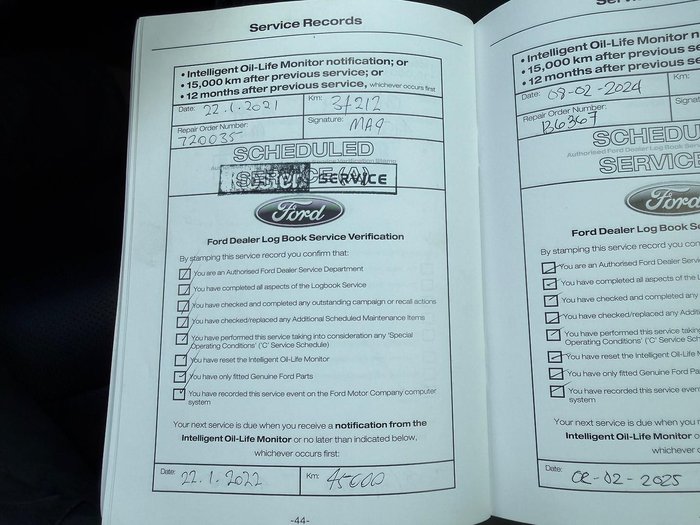 Service Records
• Intelligent Oil-Life Monitor notification; or
• 15,000 km after previous service; or
• 12 months after previous service, whichever occurs first
Date: 22.1.2021
Km: 37212
Repair Order Number:
720035
Signature: MAG
SCHEDULED
SERVICE (A)
SERVICE
Ford
Ford Dealer Log Book Service Verification
By stamping this service record you confirm that:
You are an Authorised Ford Dealer Service Department
You have completed all aspects of the Logbook Service
You have checked and completed any outstanding campaign or recall actions
You have checked/replaced any Additional Scheduled Maintenance Items
You have performed this service taking into consideration any 'Special
Operating Conditions' ('C' Service Schedule)
You have reset the Intelligent Oil-Life Monitor
You have only fitted Genuine Ford Parts
You have recorded this service event on the Ford Motor Company computer
system
Your next service is due when you receive a notification from the
Intelligent Oil-Life Monitor or no later than indicated below,
whichever occurs first:
Date: 22.1.2022
Km: 45000
-44-
• Intelligent Oil-Life Monitor
• 15,000 km after previous se
• 12 months after previous se
Date: 08-02-2024
Repair Order Number:
B6367
SCHEDU
Authorised Ford Dealer Serv
SERVIC
Ford
Ford Dealer Log Book S
By stamping this service record you con
You are an Authorised Ford Dealer Servi
You have completed all aspects of the
You have checked and completed any
You have checked/replaced any Addit
You have performed this service taking
Operating Conditions' ('C' Service Sch
You have reset the Intelligent Oil-Life M
You have only fitted Genuine Ford Pa
You have recorded this service event
system
Your next service is due when you
Intelligent Oil-Life Monitor o
whichever o
Date:
02-02-2025